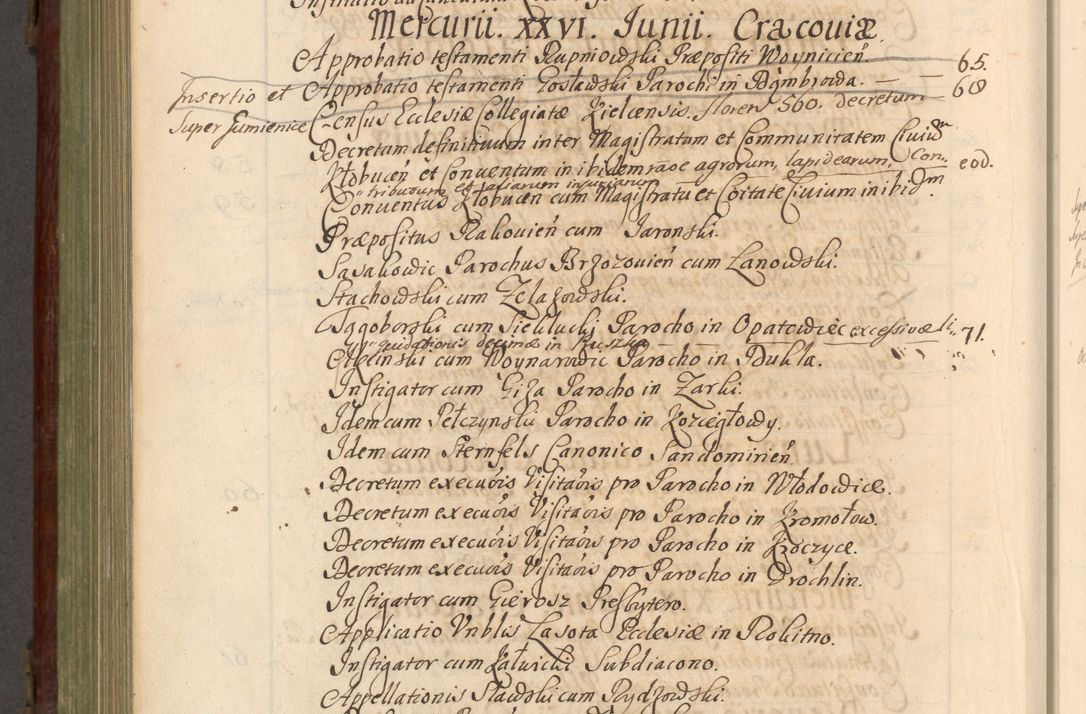 Mercurii. XXVI. Junii. Cracoviæ.
Approbatio testamenti Rupniowski Præpositi Woynicień. 65.
Insertio et Approbatio testamenti Gosławski Parochi in Dąmbrowa. — — 68
Super Jumienice Census Ecclesiæ Collegiatæ Kielcensis. floren 560. decretum
Decretum definitivum inter Magistratum et Communitatem Civium
Kłobucen et Conventum in ibidem rãoe agrorum, lapidearum, Con- eod.
tributorum et
Conventus Kłobucen cum Magistratu et Coitate Civium inibidm.
Præpositus Rakovień cum Jaronski.
Sasakowic Parochus Brzozovień cum Lanowski.
Stachowski cum Zelazowski.
Parocho in Opatowiec excessivæ li- 71.
quidationis decimæ in
cum Woynarowic Parocho in Dukla.
Instigator cum Giza Parocho in Zarki.
Idem cum Pełczynski Parocho in Koziegłowy.
Idem cum Sternfels Canonico Sandomirień.
Decretum execuõis Visitaõis pro Parocho in Włodowice.
Decretum execuõis Visitaõis pro Parocho in Kromołow.
Decretum execuõis Visitaõis pro Parocho in Kroczyce.
Decretum execuõis Visitaõis pro Parocho in Drochlin.
Instigator cum Gierosz Presbytero.
Applicatio Vnblis Lasota Ecclesiæ in Rokitno.
Instigator cum Załuscki Subdiacono.
Appellationis Sławski cum Rydzowski.